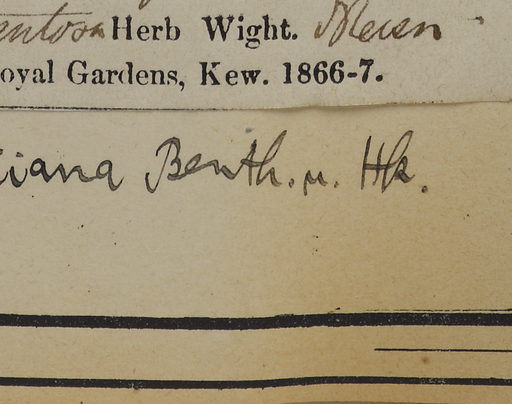 entosa Herb Wight. Meisn
oyal Gardens, Kew. 1866-7.
iana Benth. u. Hk.